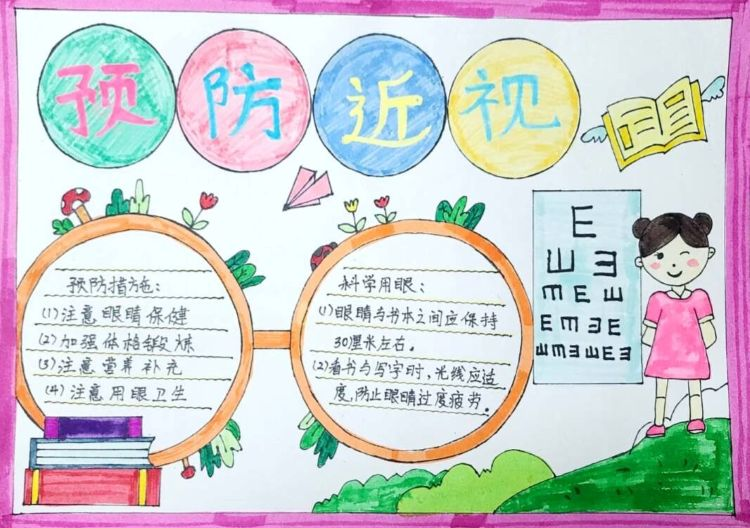 预防近视
预防措施:
(1)注意眼睛保健
(2)加强体格锻炼
(3)注意营养补充
(4)注意用眼卫生
科学用眼:
(1)眼睛与书本之间应保持
30厘米左右。
(2)看书与写字时,光线应适
度,防止眼睛过度疲劳。
E
E E
E E E
E E E E
E E E E E E